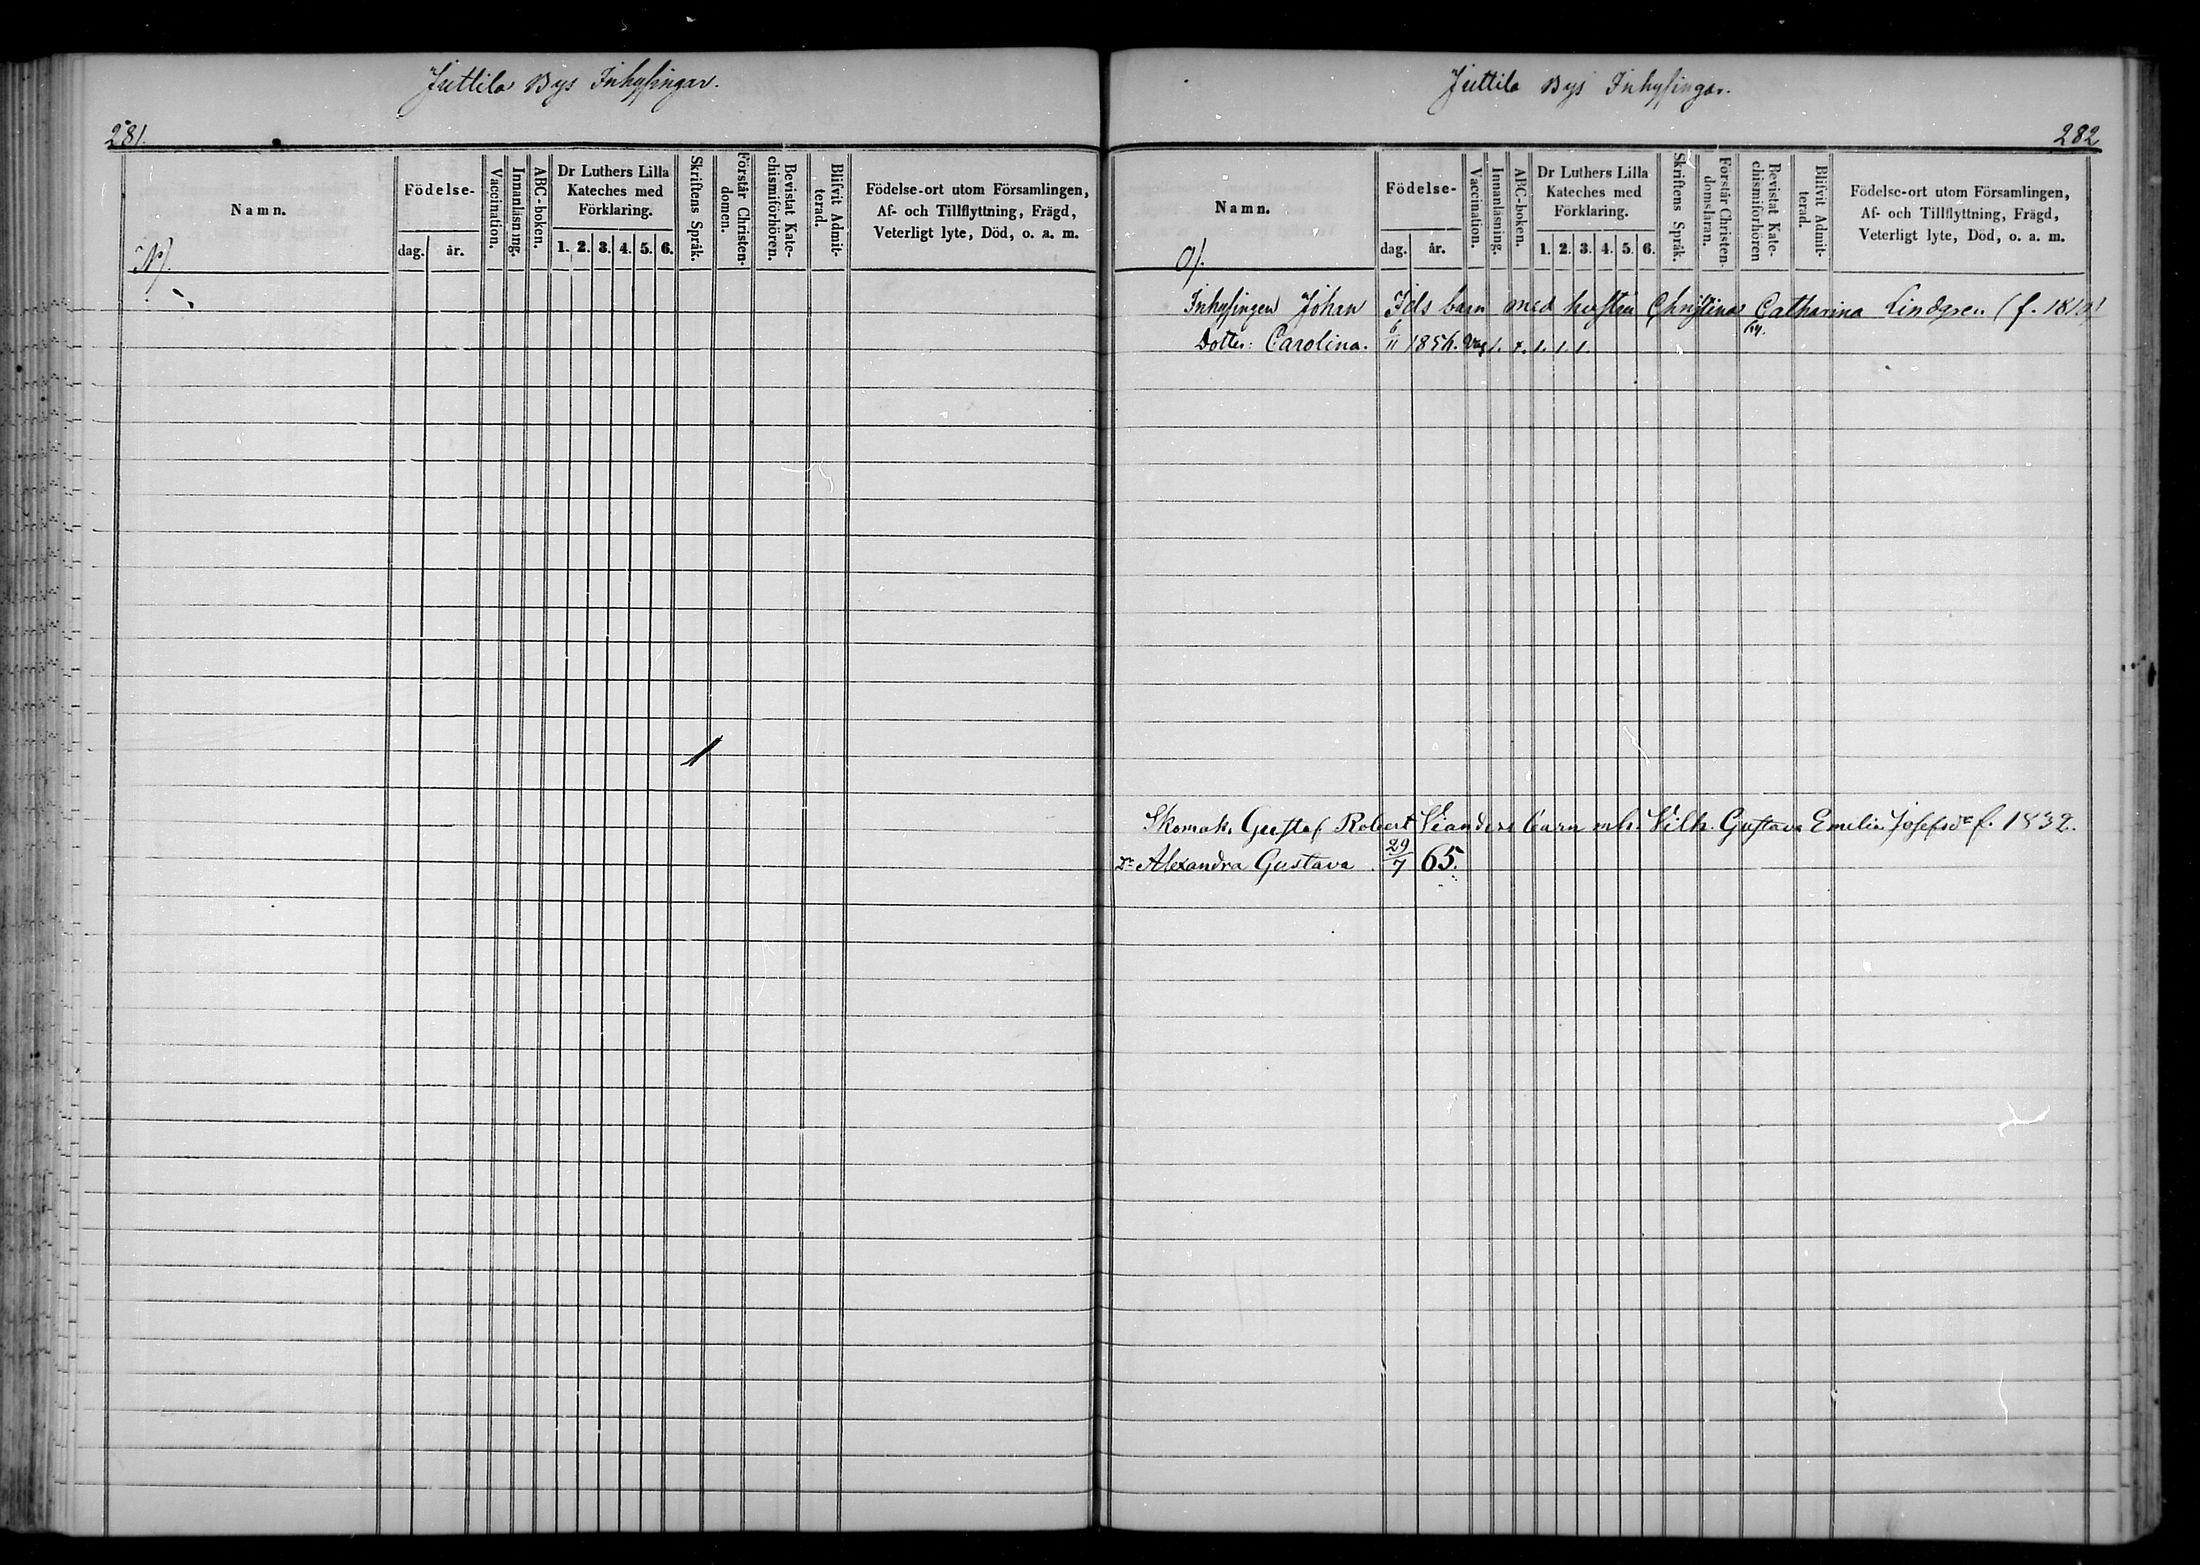 Juttila Bys Inhysingar.
281.
Namn.
N).
Födelse-
dag. år.
Vaccination.
Innanläsning.
ABC-boken.
Dr Luthers Lilla
Kateches med
Förklaring.
1. 2. 3. 4. 5. 6.
Skriftens Språk.
Förstår Christen-
domen.
Bevistat Kate-
chismiförhören.
Blifvit Admit-
terad.
Födelse-ort utom Församlingen,
Af- och Tillflyttning, Frägd,
Veterligt lyte, Död, o. a. m.
Juttila Bys Inhysingar.
282
Namn.
O).
Födelse-
dag. år.
Vaccination.
Innanläsning.
ABC-boken.
Dr Luthers Lilla
Kateches med
Förklaring.
1. 2. 3. 4. 5. 6.
Skriftens Språk.
Förstår Christen-
domsläran.
Bevistat Kate-
chismiförhören
Blifvit Admit-
terad.
Födelse-ort utom Församlingen,
Af- och Tillflyttning, Frägd,
Veterligt lyte, Död, o. a. m.
Inhysingen Johan Ids barn med hustru Christina Catharina Lindgren (f. 1819)
Dotter: Carolina. 6/11 1856. 1. x. 1. 1. 1.
Skomak. Gustaf Robert Vianders barn mh. Vilh. Gustava Emelia Josefsdr f. 1832.
Dr Alexandra Gustava 29/7 65.